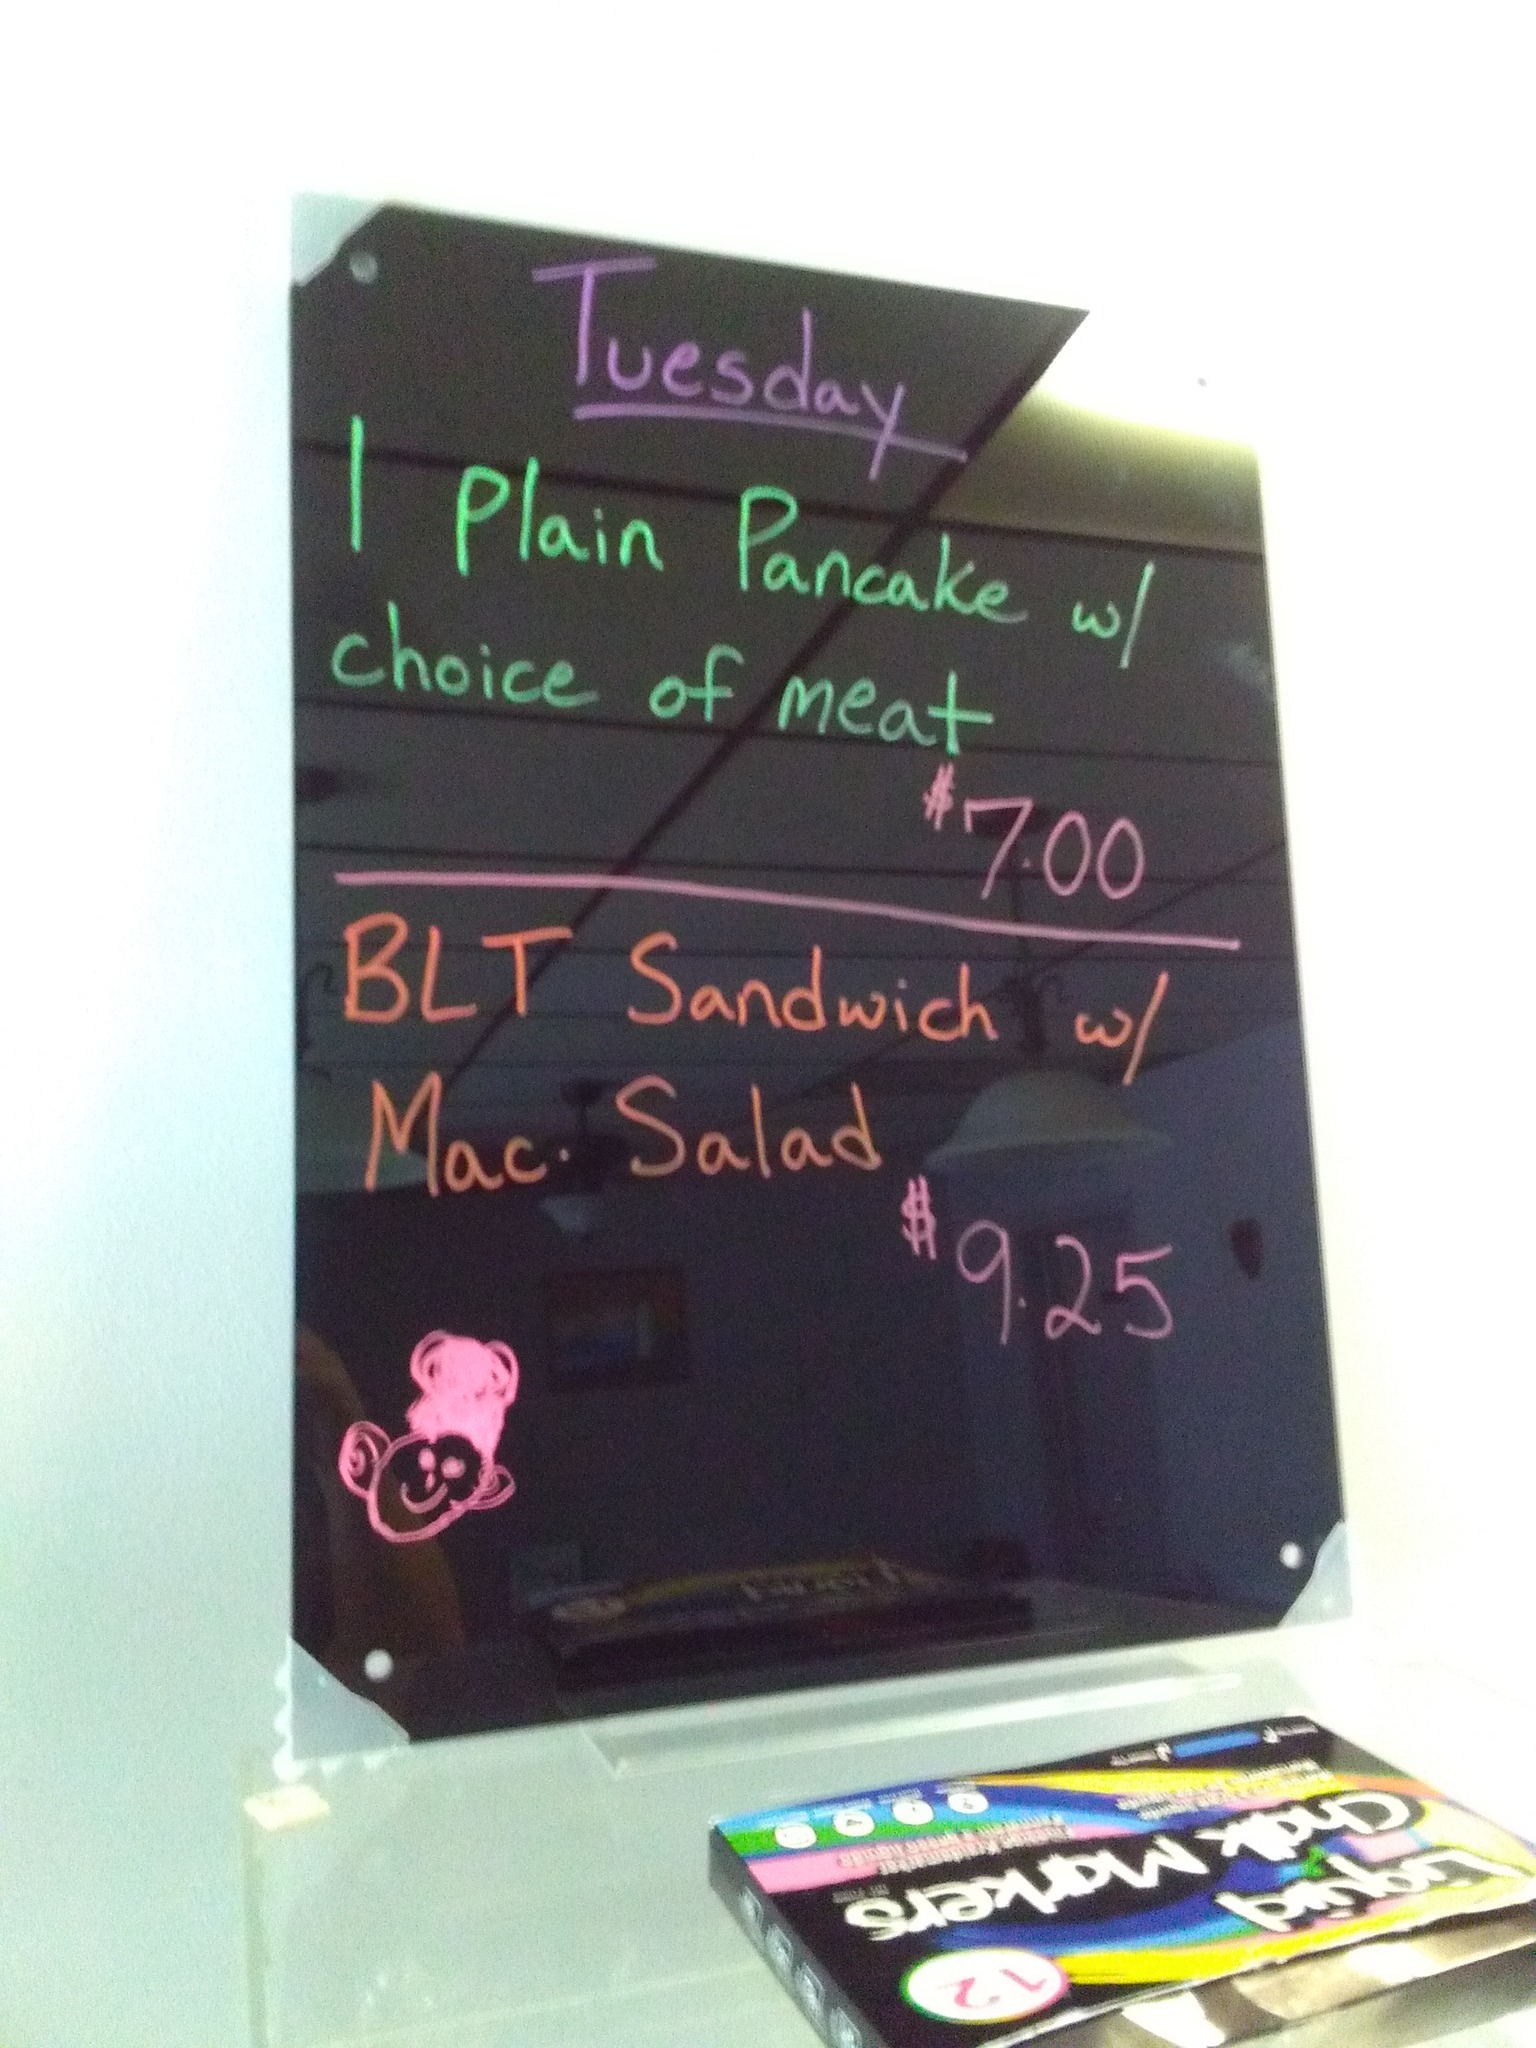 Tuesday
1 Plain Pancake w/
choice of meat
$7.00
BLT Sandwich w/
Mac. Salad
$9.25
Liquid
Chalk Markers
12